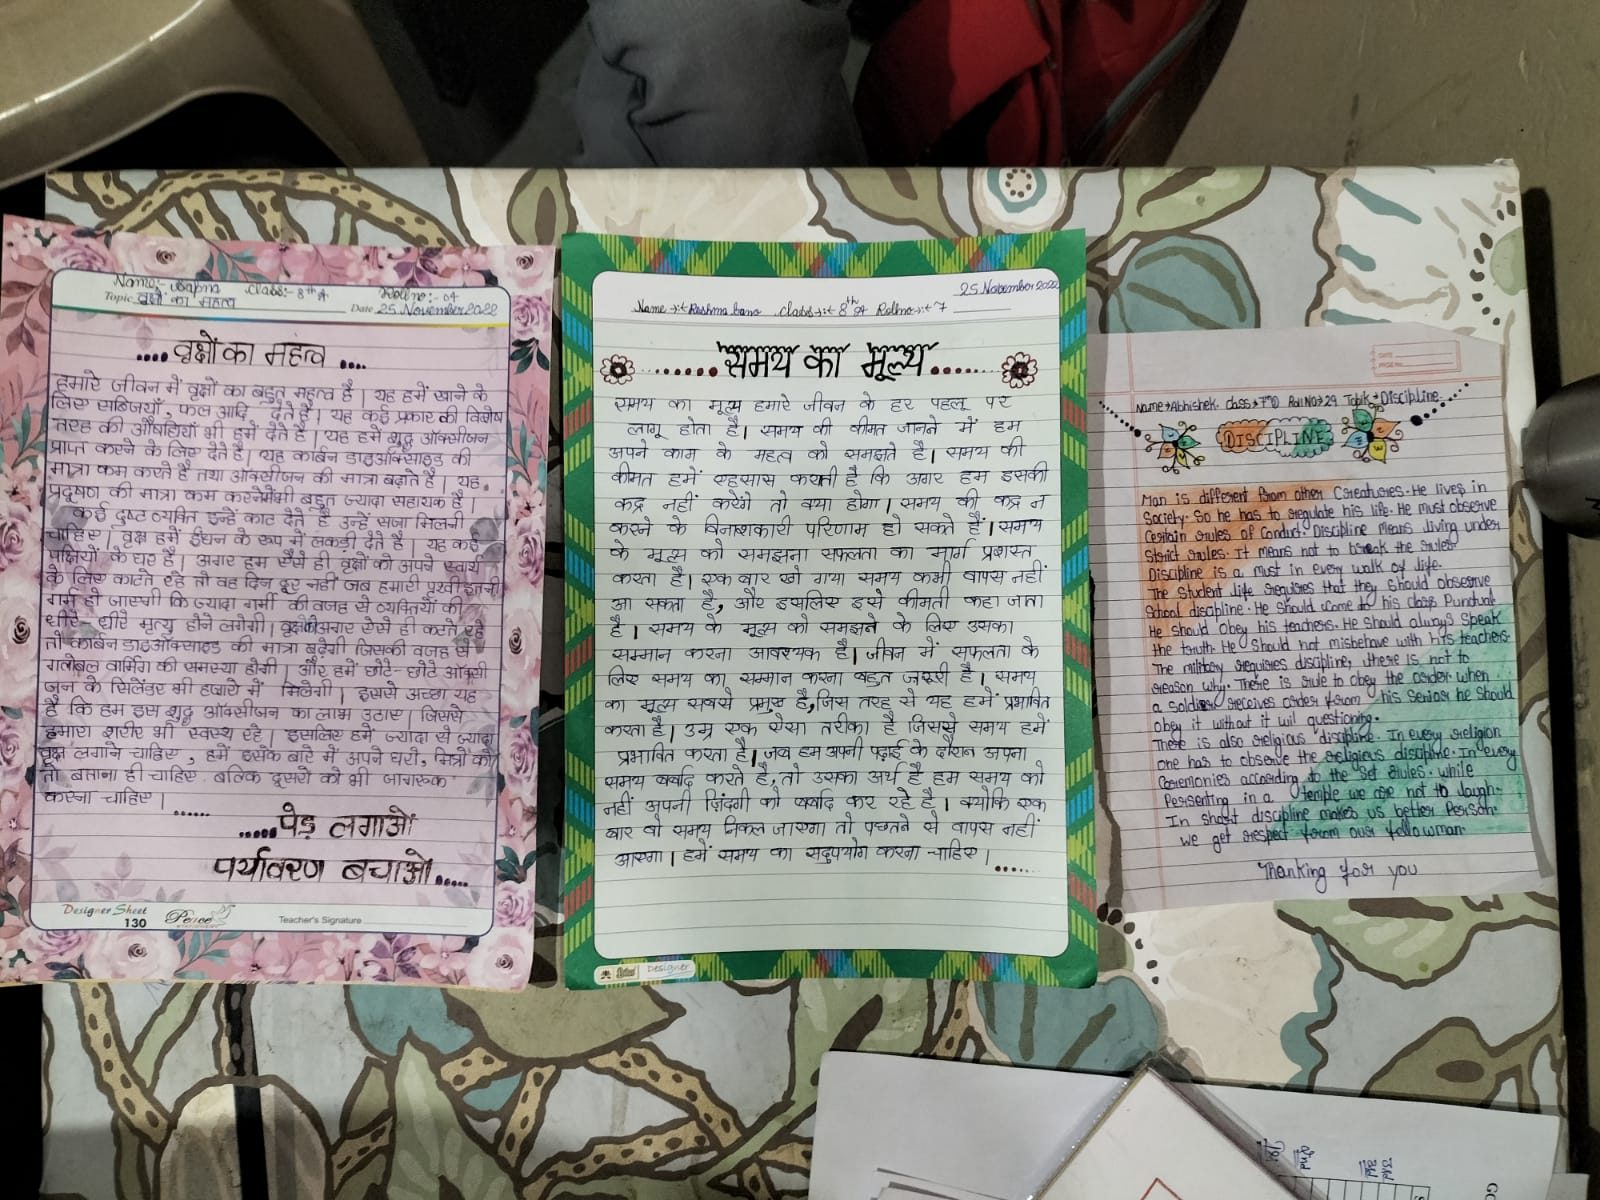 Name:- Sapna Class:- 8th A Roll no:- 04
Topic वृक्षों का महत्व
Date 25 November 2022
वृक्षों का महत्व
हमारे जीवन में वृक्षों का बहुत महत्व है। यह हमें खाने के
लिए सब्जियाँ, फल आदि देते है। यह कई प्रकार की विशेष
तरह की औषधियाँ भी हमें देते है। यह हमें शुद्ध ऑक्सीजन
प्राप्त करने के लिए देते है। यह कार्बन डाइऑक्साइड की
मात्रा कम करते है तथा ऑक्सीजन की मात्रा बढ़ाते है। यह
प्रदूषण की मात्रा कम करने में भी बहुत ज्यादा सहायक है।
कई दुष्ट व्यक्ति इन्हें काट देते है उन्हें सजा मिलनी
चाहिए। वृक्ष हमें ईंधन के रूप में लकड़ी देते है। यह कई
पक्षियों के घर है। अगर हम ऐसे ही वृक्षों को अपने स्वार्थ
के लिए काटते रहे तो वह दिन दूर नहीं जब हमारी पृथ्वी इतनी
गर्म हो जाएगी कि ज्यादा गर्मी की वजह से व्यक्तियों की
धीरे-धीरे मृत्यु होने लगेगी। अगर ऐसे ही कटते रहे
तो कार्बन डाइऑक्साइड की मात्रा बढ़ेगी जिसकी वजह से
ग्लोबल वार्मिंग की समस्या होगी। और हमें छोटे-छोटे ऑक्सी
जन के सिलेंडर भी हजारो में मिलेगी। इससे अच्छा यह
है कि हम इस शुद्ध ऑक्सीजन का लाभ उठाए। जिससे
हमारा शरीर भी स्वस्थ रहे। इसलिए हमें ज्यादा से ज्यादा
वृक्ष लगाने चाहिए, हमें इसके बारे में अपने घरो, मित्रों को
तो बताना ही चाहिए बल्कि दूसरो को भी जागरूक
करना चाहिए।
पेड़ लगाओ
पर्यावरण बचाओ
Designer Sheet
130
Teacher's Signature
25 November 2022
Name →:- Reshma bano Class →:- 8th A Rollno →:- 7
समय का मूल्य
समय का मूल्य हमारे जीवन के हर पहलू पर
लागू होता है। समय की कीमत जानने में हम
अपने काम के महत्व को समझते है। समय की
कीमत हमें एहसास कराती है कि अगर हम इसकी
कद्र नहीं करेंगे तो क्या होगा। समय की कद्र न
करने के विनाशकारी परिणाम हो सकते हैं। समय
के मूल्य को समझना सफलता का मार्ग प्रशस्त
करता है। एक बार खो गया समय कभी वापस नहीं
आ सकता है, और इसलिए इसे कीमती कहा जाता
है। समय के मूल्य को समझने के लिए उसका
सम्मान करना आवश्यक है। जीवन में सफलता के
लिए समय का सम्मान करना बहुत जरूरी है। समय
का मूल्य सबसे प्रमुख है, जिस तरह से यह हमें प्रभावित
करता है। उम्र एक ऐसा तरीका है जिससे समय हमें
प्रभावित करता है। जब हम अपनी पढ़ाई के दौरान अपना
समय बर्बाद करते है, तो उसका अर्थ है हम समय को
नहीं अपनी ज़िंदगी को बर्बाद कर रहे है। क्योंकि एक
बार वो समय निकल जाएगा तो पछतने से वापस नहीं
आएगा। हमें समय का सदुपयोग करना चाहिए।
Designer
DATE
PAGE NO.
Name→Abhishek. class→7th D Roll No→29 Topik→Discipline.
DISCIPLINE
Man is different from other Coreatures. He lives in
Society. So he has to regulate his life. He must observe
Certain rules of Conduct. Discipline means living under
Strict rules. It means not to break the rules
Discipline is a must in every walk of life.
The Student life requises that they should obseerve
School discipline. He should come to his class Punctual
He should obey his teachers. He should always speak
the truth. He Should not misbehave with his teachers.
The military requises discipline, there is not to
reason why. There is rule to obey the order when
a soldier receives order from his senior he should
obey it without it wil questioning.
There is also religious discipline. In every religion
one has to observe the religious discipline. In every
Ceremonies according to the Set rules. while
Persenting in a temple we are not to laugh.
In short discipline makes us better Person.
we get respect from our fellowman.
Thanking for you